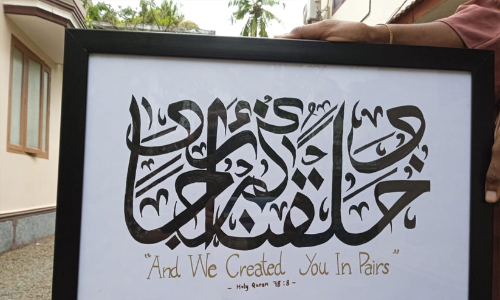 وخلقناكم أزواجا
"And We Created You In Pairs"
- Holy Quran 78:8 -